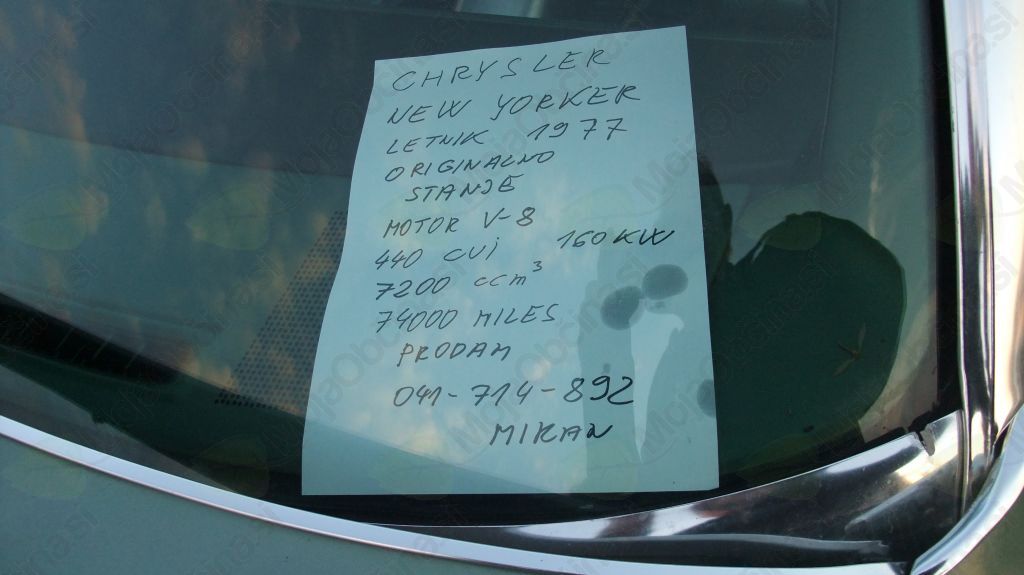 CHRYSLER
NEW YORKER
LETNIK 1977
ORIGINALNO
STANJE
MOTOR V-8
440 CUi 160 KW
7200 ccm³
74000 MILES
PRODAM
041-714-892
MIRAN
MojaObčina.si